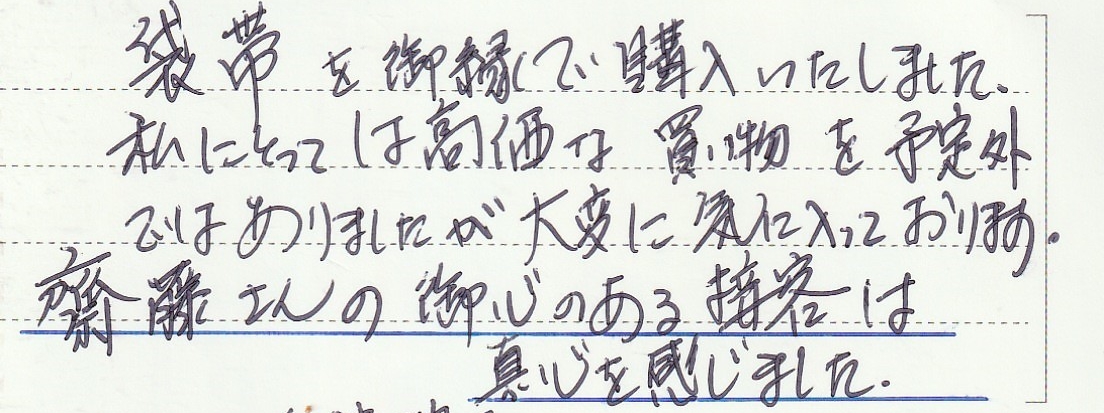 袋帯を御縁で購入いたしました。
私にとっては高価な買い物を予定外
ではありましたが大変に気に入っております。
齋藤さんの御心のある接客は
真心を感じました。